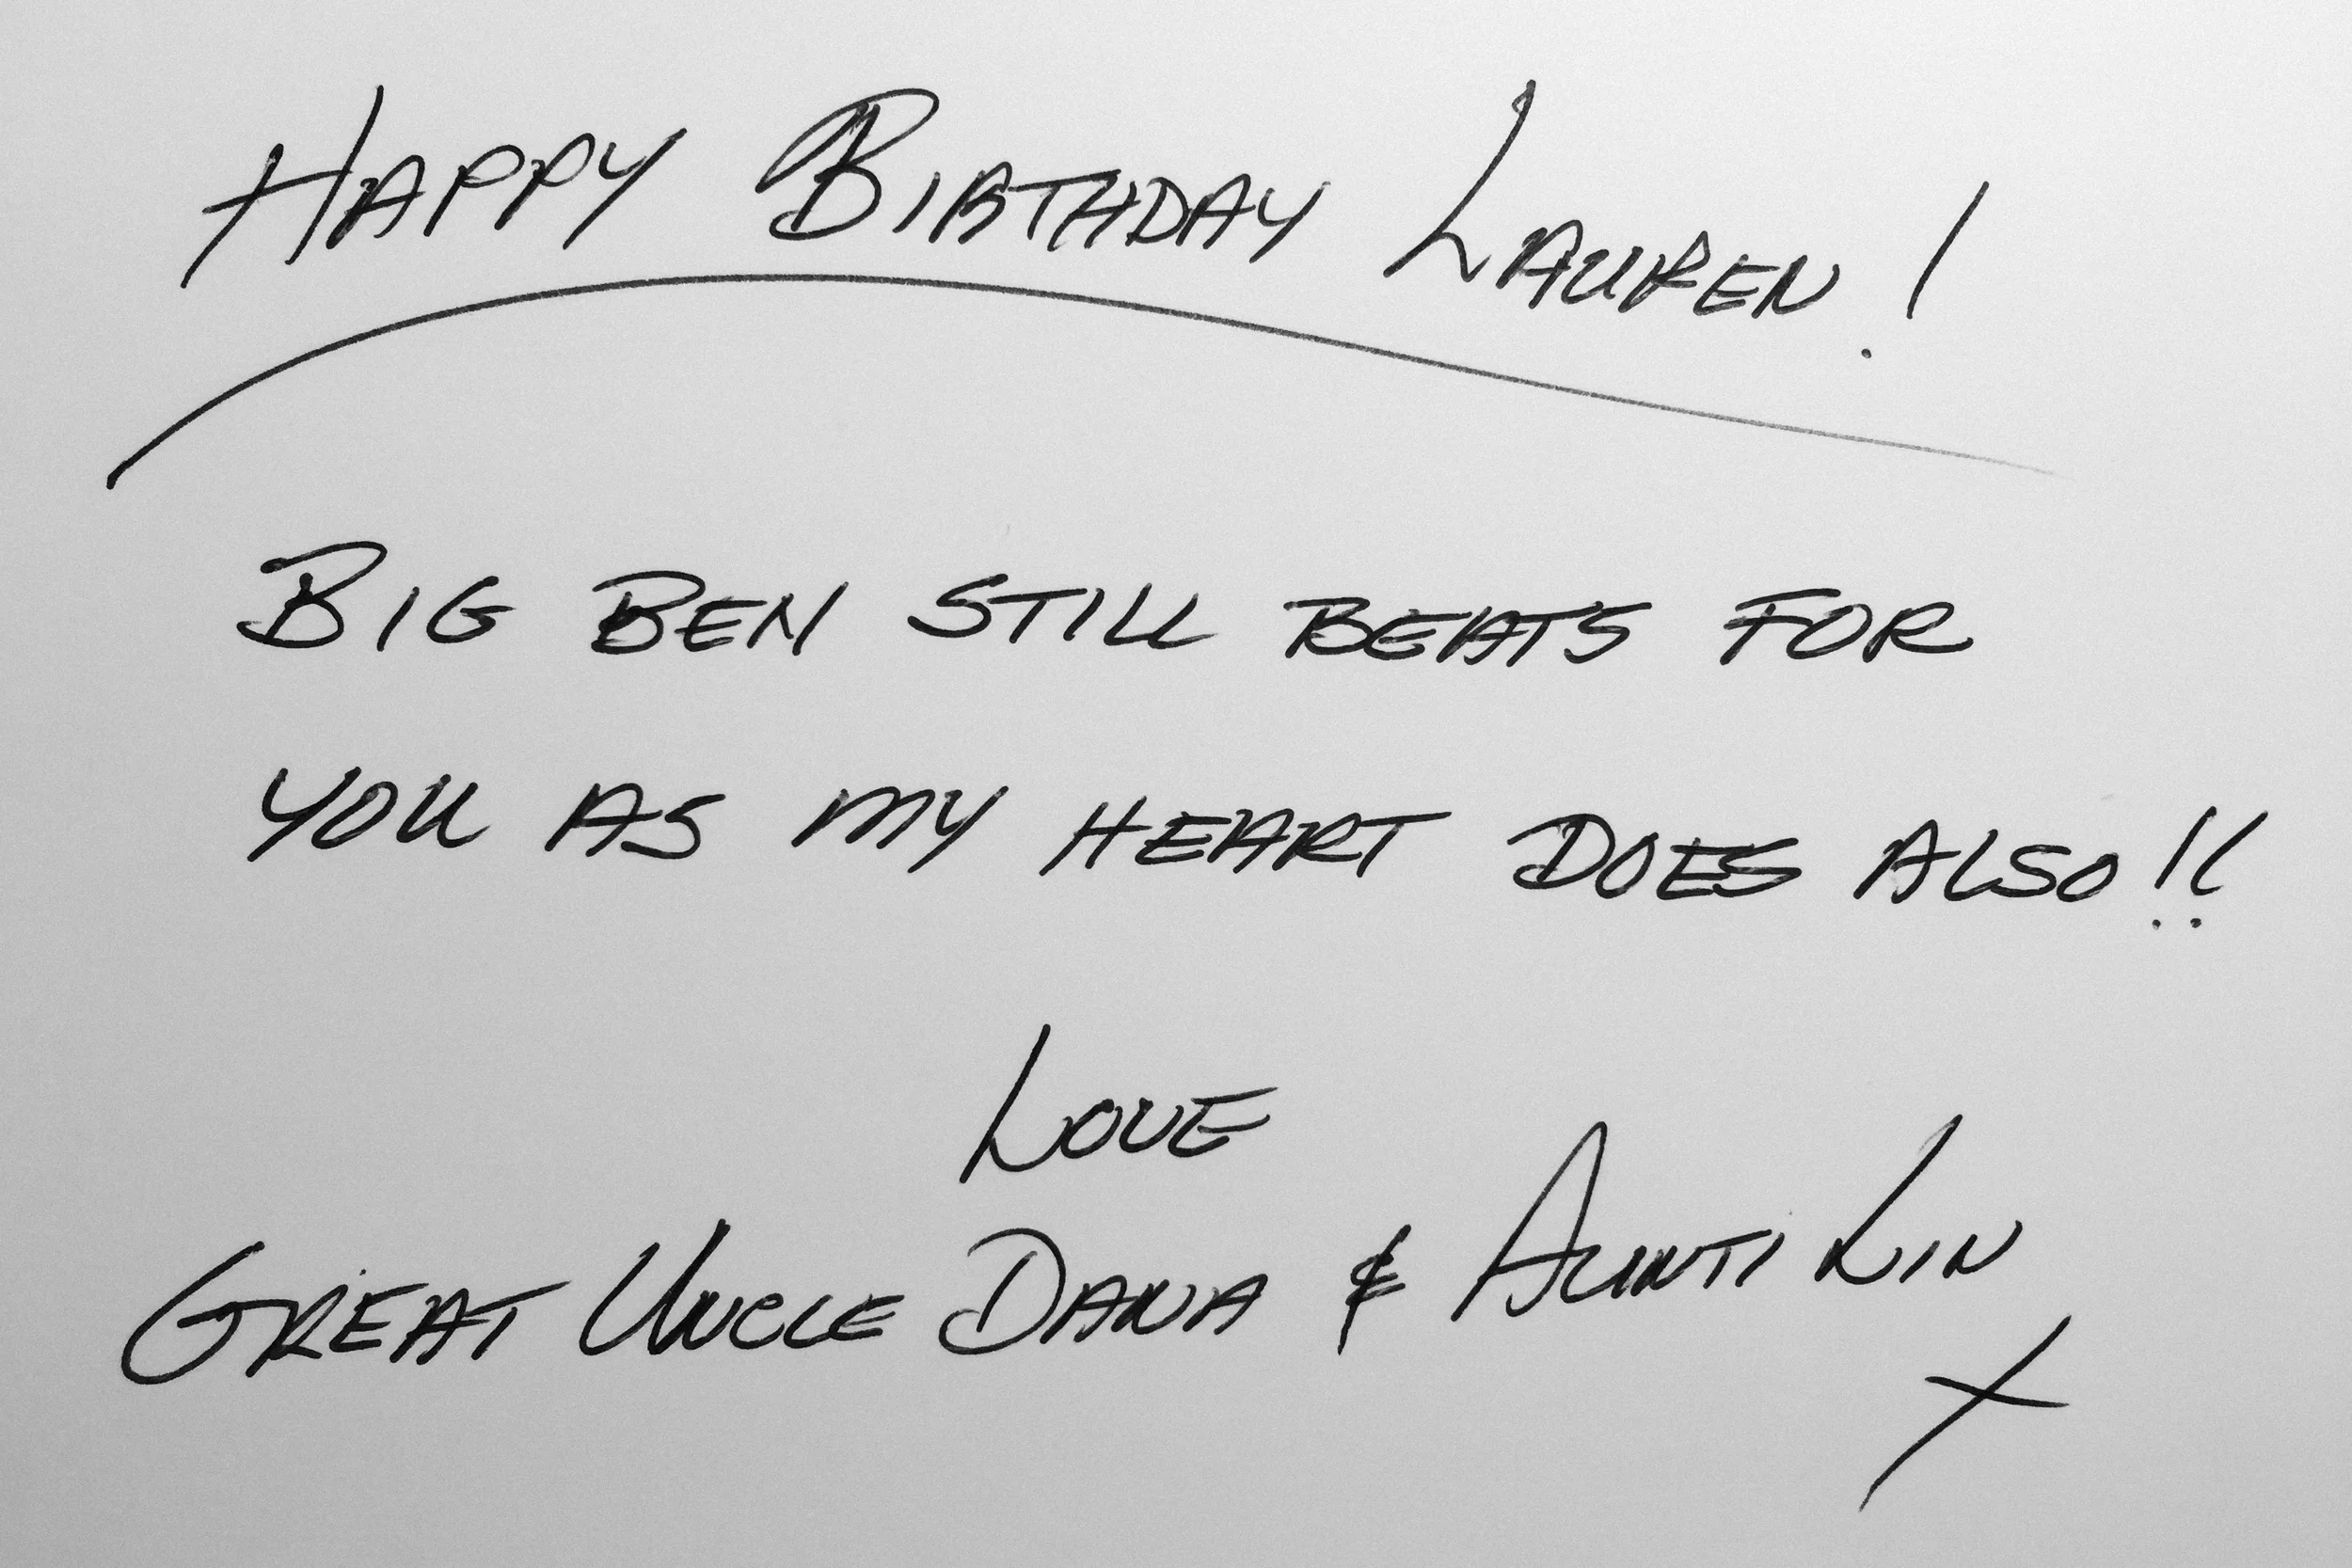 HAPPY BIRTHDAY LAUREN!
BIG BEN STILL BEATS FOR
YOU AS MY HEART DOES ALSO!!
LOVE
GREAT UNCLE DANA & AUNTI LIN
X